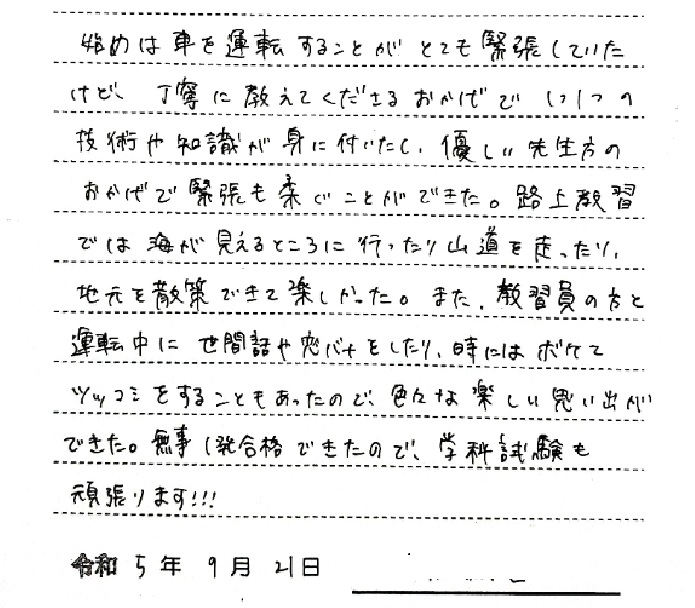 始めは車を運転することがとても緊張していた
けど、丁寧に教えてくださるおかげで 1つ1つの
技術や知識が身に付いたし、優しい先生方の
おかげで緊張も柔ぐことができた。路上教習
では海が見えるところに行ったり山道を走ったり、
地元を散策できて楽しかった。また、教習員の方と
運転中に世間話や恋バナをしたり、時にはボケて
ツッコミをすることもあったので、色々な楽しい思い出が
できた。無事1発合格できたので、学科試験も
頑張ります!!!
令和 5年 9月 21日